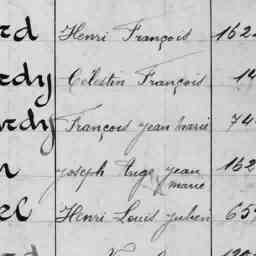 rd Henri François 162
rdy Celestin François 14
rdy François jean marie 74
n joseph Ange jean 162
marie
el Henri Louis julien 65